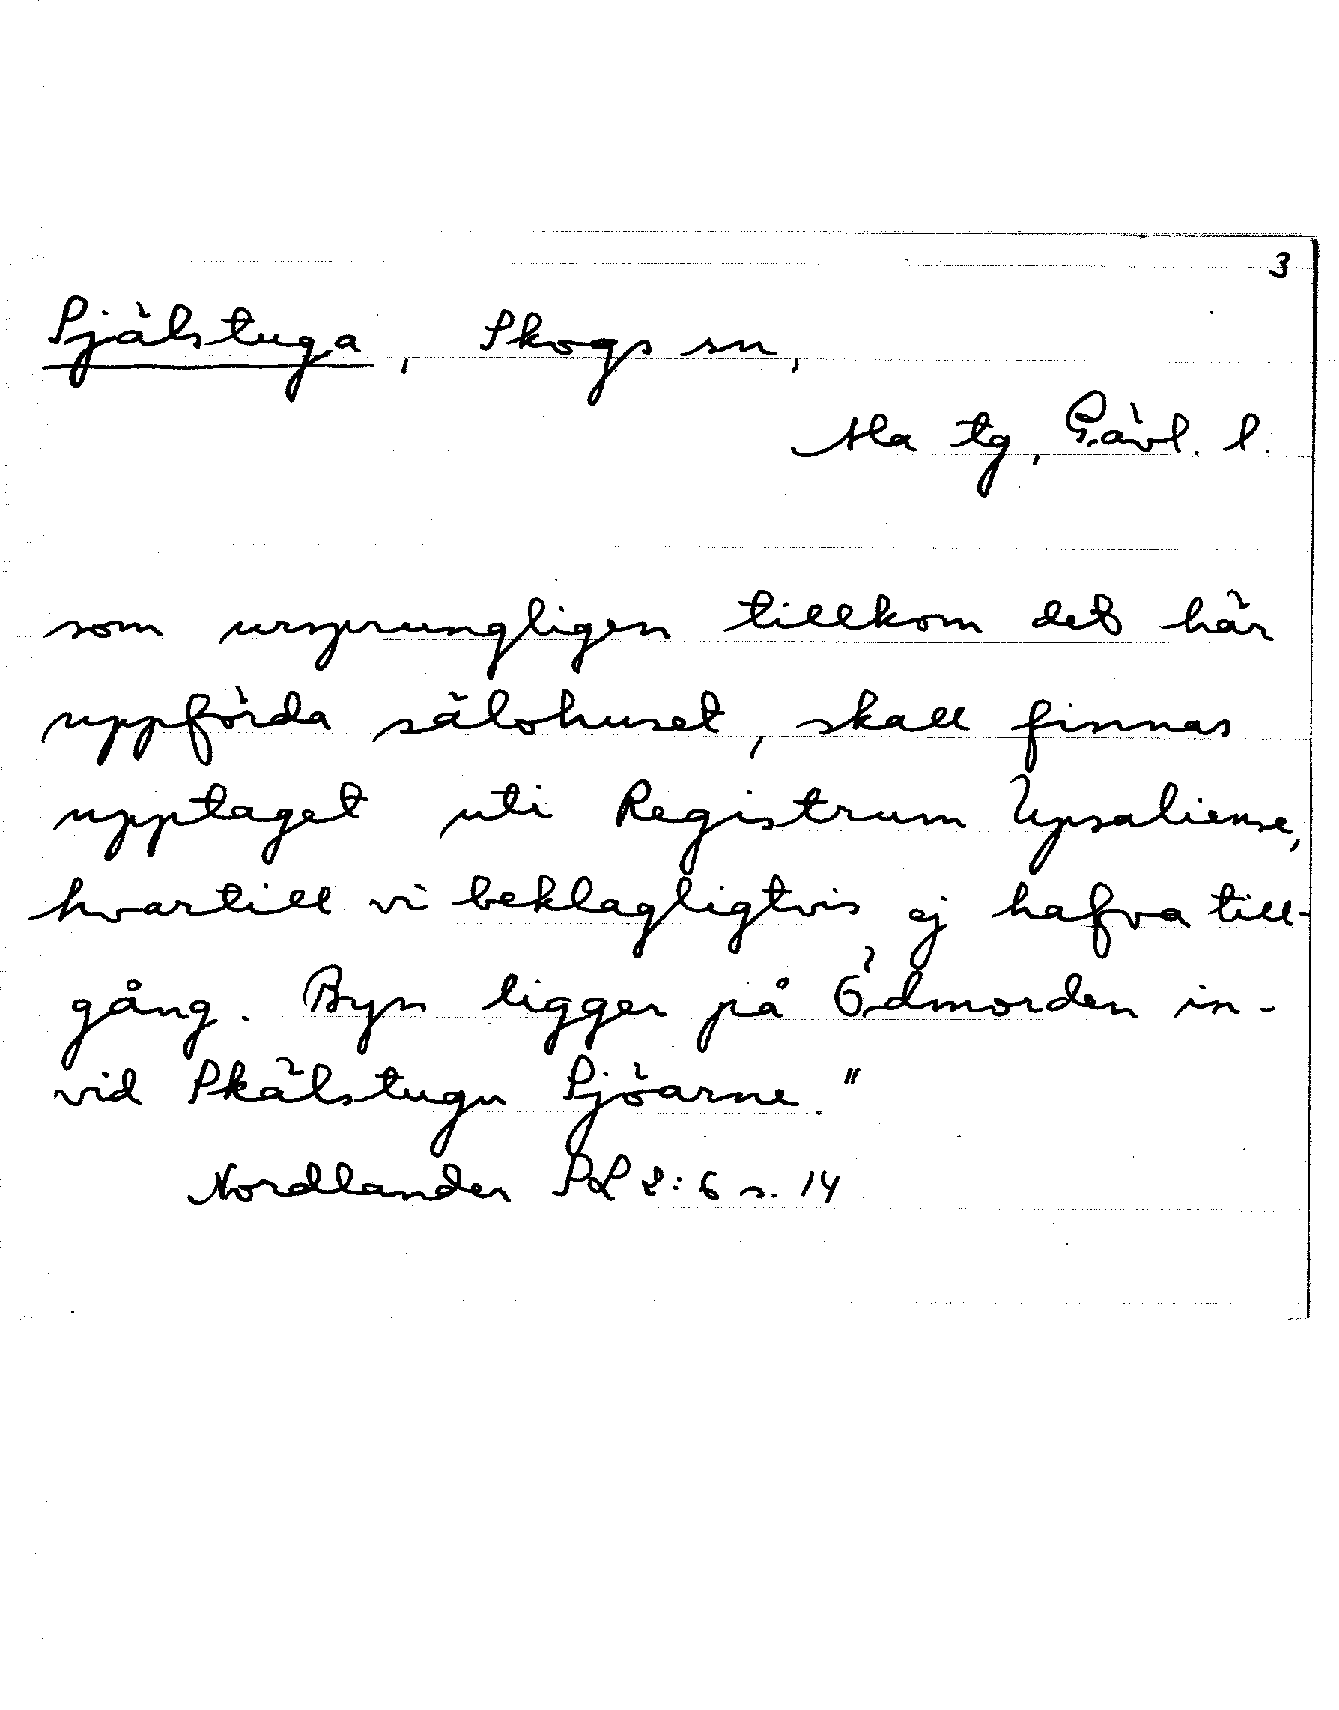 3
Själstuga, Skogs sn,
Ala tg, Gävl. l.
som ursprungligen tillkom det här
uppförda sälohuset, skall finnas
upptaget uti Registrum Upsaliense,
hvartill vi beklagligtvis ej hafva till-
gång. Byn ligger på Ödmorden in-
vid Skälstugu Sjöarne."
Nordlander SL 2:6 s. 14